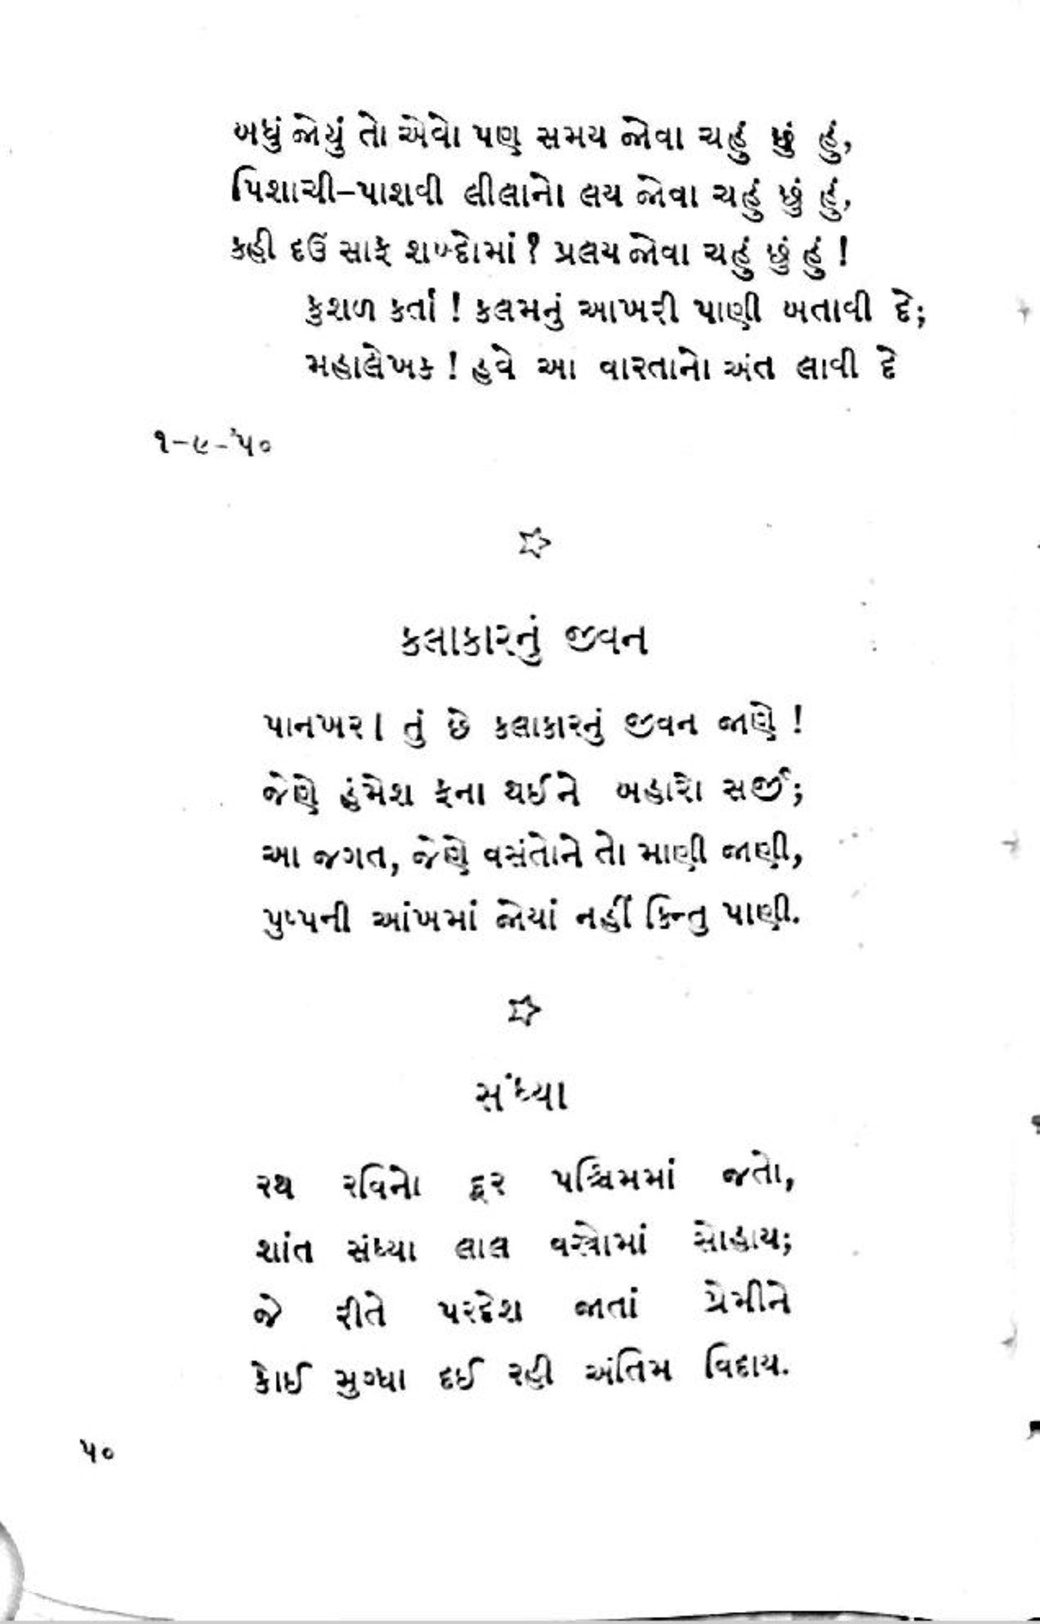 બધું જોયું તો એવો પણ સમય જોવા ચહું છું હું,
પિશાચી-પાશવી લીલાનો લય જોવા ચહું છું હું,
કહી દઉં સાફ શબ્દોમાં ? પ્રલય જોવા ચહું છું હું !
કુશળ કર્તા ! કલમનું આખરી પાણી બતાવી દે;
મહાલેખક ! હવે આ વારતાનો અંત લાવી દે
૧-૯-'૫૦
કલાકારનું જીવન
પાનખર। તું છે કલાકારનું જીવન જાણે !
જેણે હંમેશ ફના થઈને બહારો સર્જી;
આ જગત, જેણે વસંતોને તો માણી જાણી,
પુષ્પની આંખમાં જોયાં નહીં કિન્તુ પાણી.
સંધ્યા
રથ રવિનો દૂર પશ્ચિમમાં જતો,
શાંત સંધ્યા લાલ વસ્ત્રોમાં સોહાય;
જે રીતે પરદેશ જાતાં પ્રેમીને
કોઈ મુગ્ધા દઈ રહી અંતિમ વિદાય.
૫૦